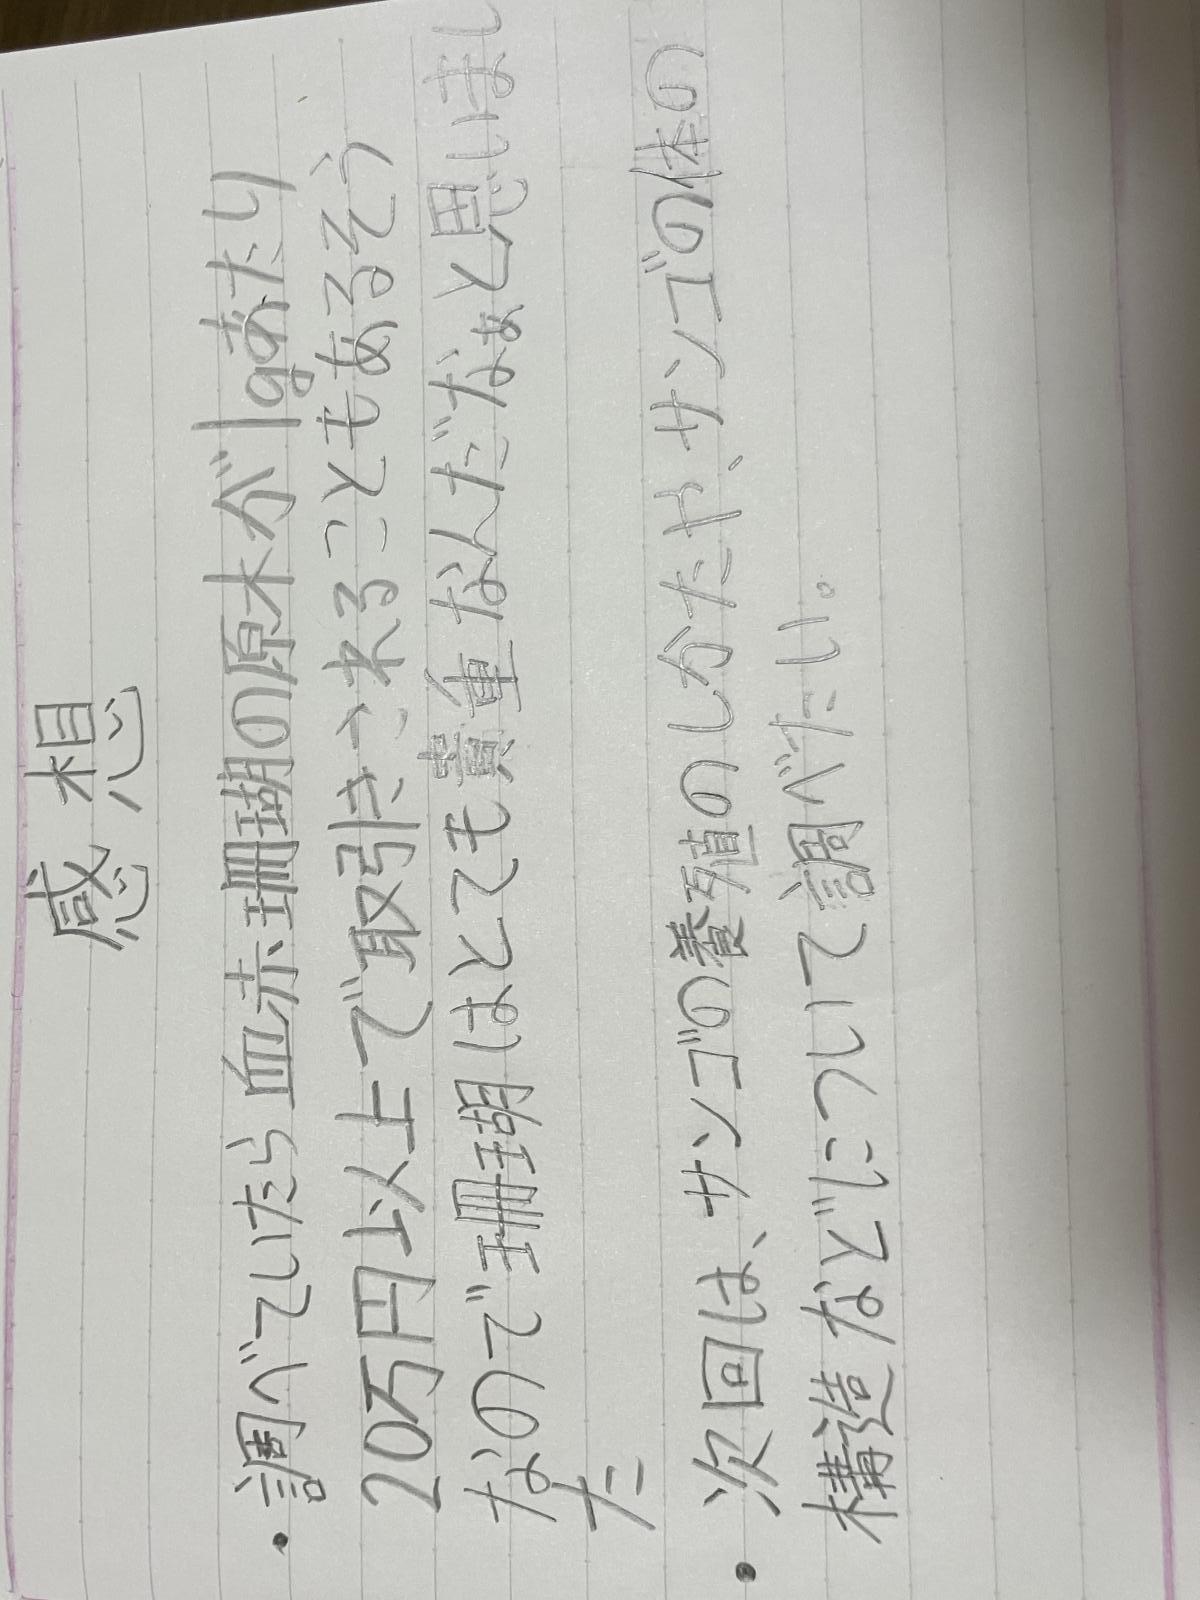 感想
・調べていたら血赤珊瑚の原木が1gあたり
20万円以上で取引きされることもあるそう
なので珊瑚はとても貴重なんだなぁと思いまし
た
・次回は、サンゴの養殖のしかたや、サンゴの私の
構造などについて調べたい。